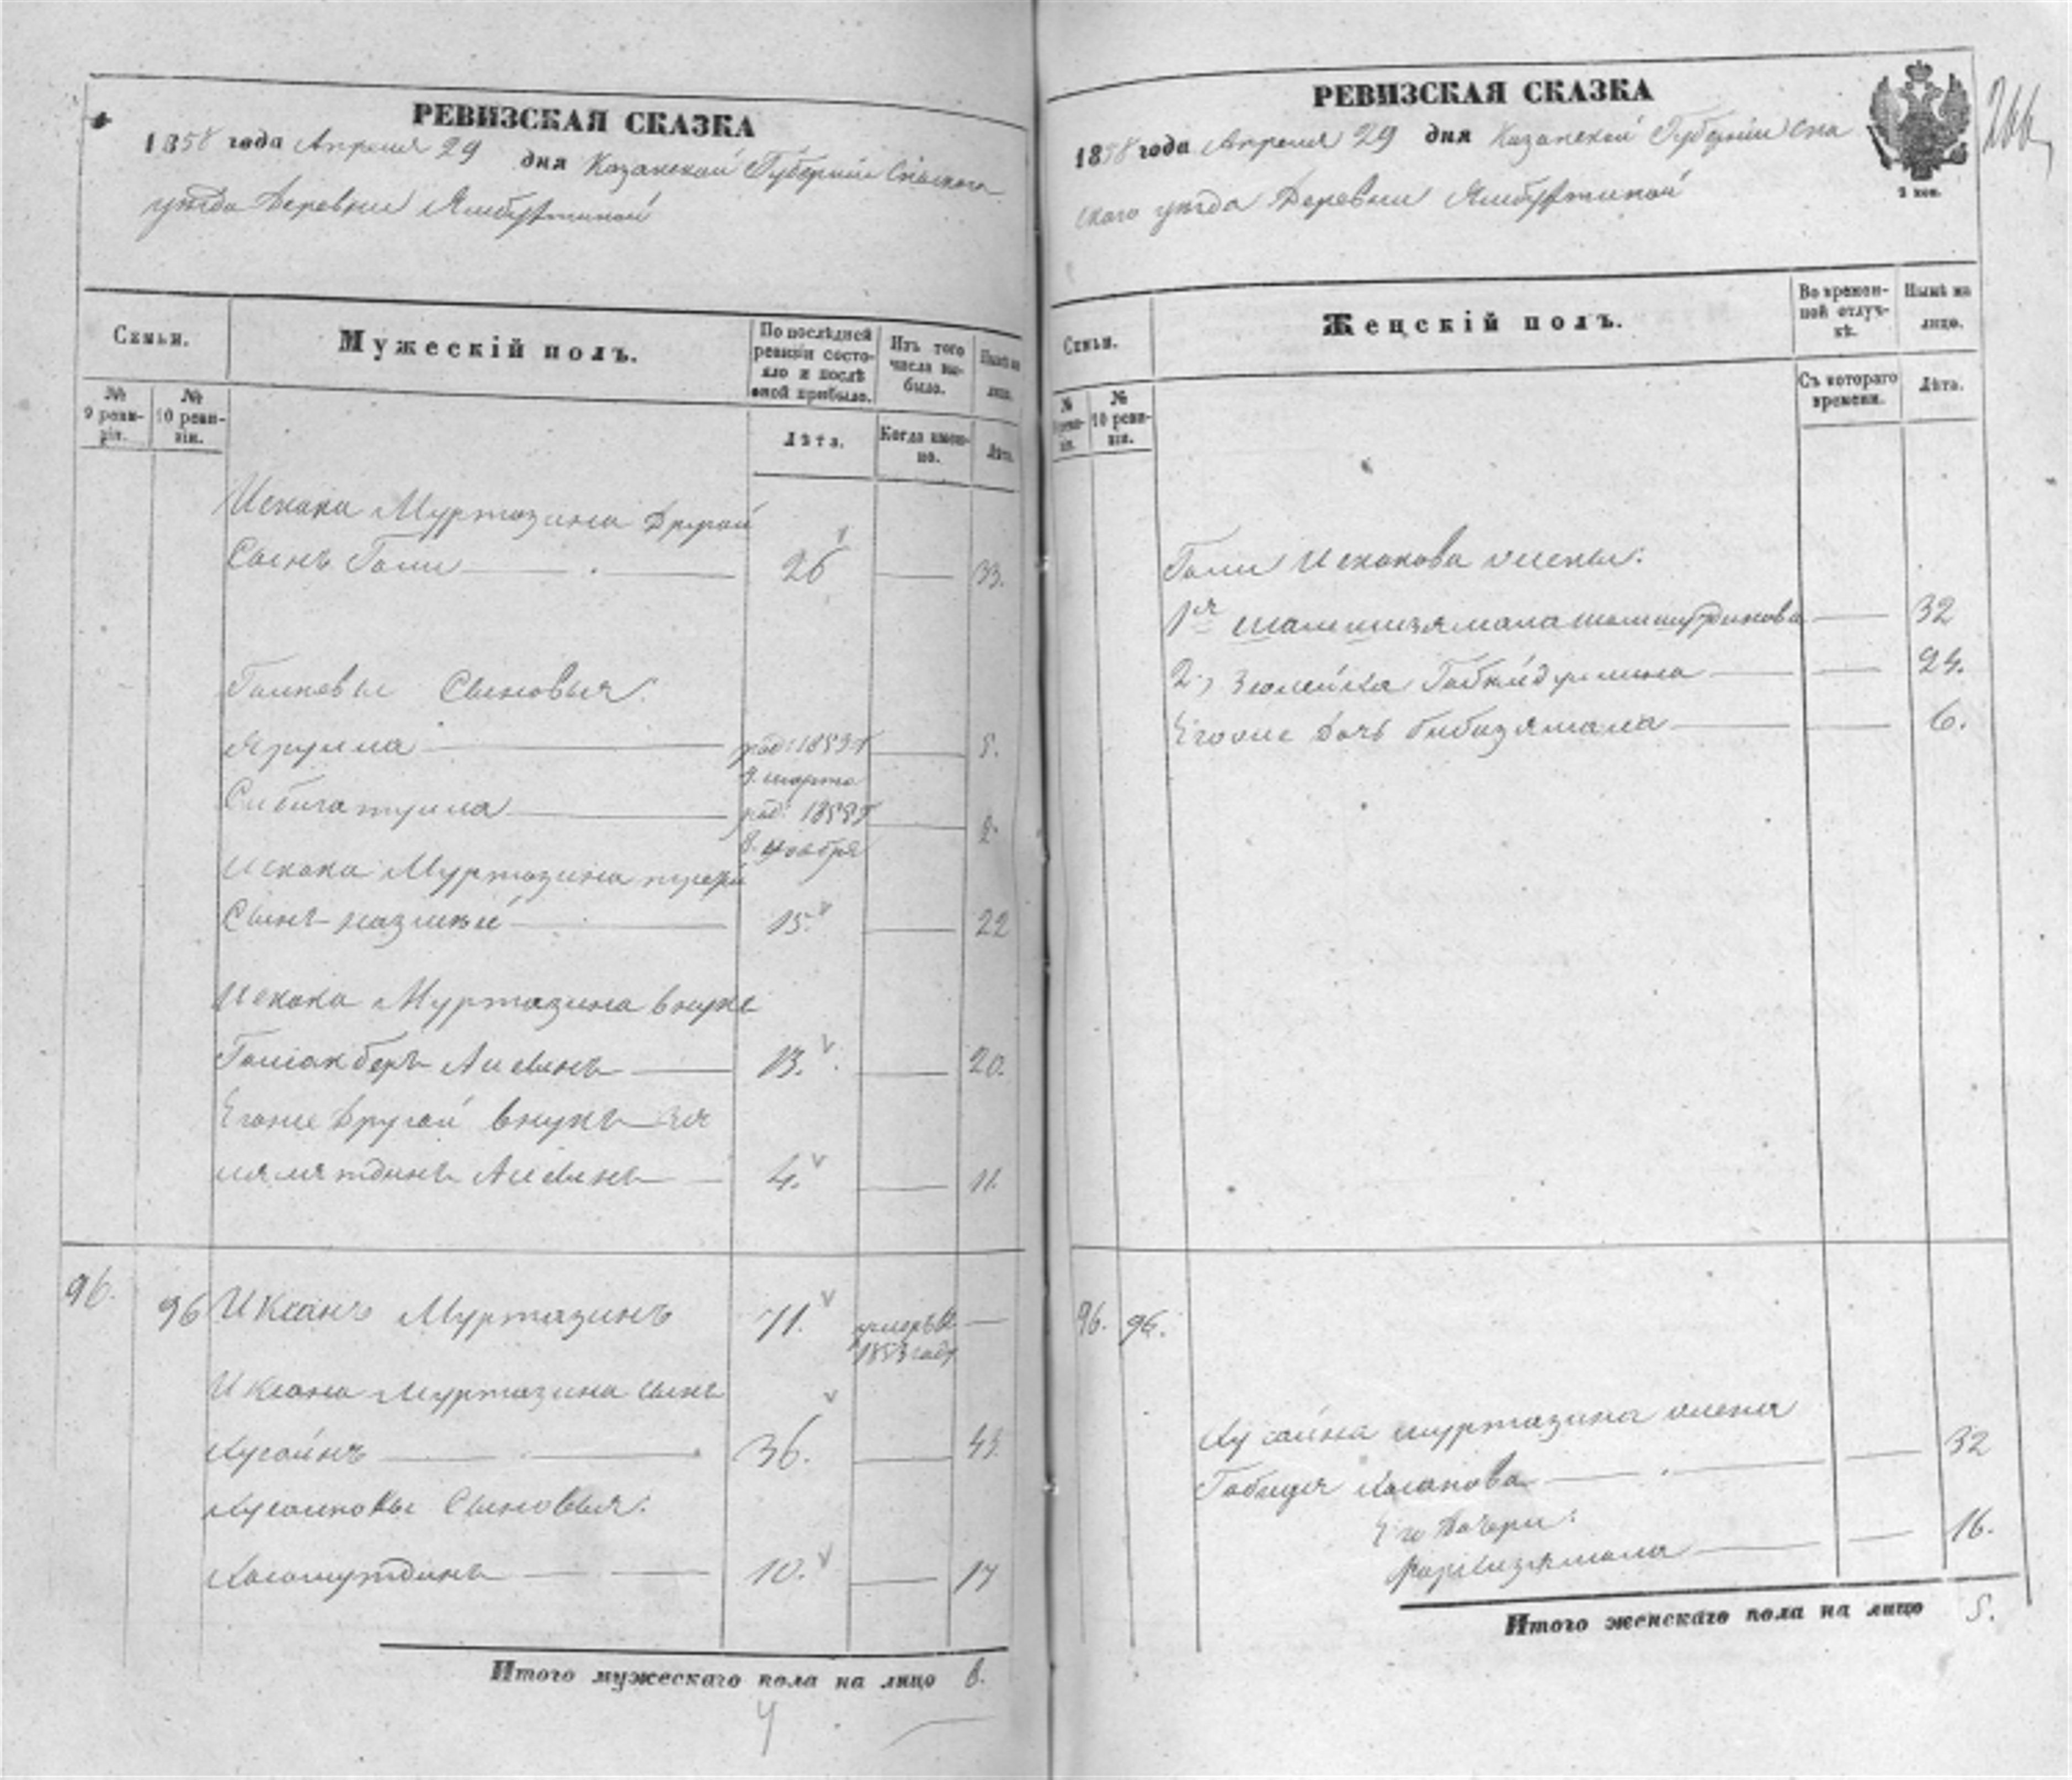 РЕВИЗСКАЯ СКАЗКА
1858 года Апреля 29 дня Казанской Губернии Спаскаго
уезда Деревни Ямбухтиной
Семьи.
Мужескій полъ.
По последней ревизіи состояло и после оной прибыло.
Изъ того числа выбыло.
Ныне на лицо.
№ 9 ревизіи.
№ 10 ревизіи.
Лета.
Когда именно.
Лета.
Искака Муртазина другой
Сынъ Гали 26 33.
Галиевы Сыновья:
Ярулла род: 1853 г 5.
9. марта
Сибигатулла род: 1855 г 2.
8. ноября
Искака Муртазина
Сынъ 15. 22
Искака Муртазина внукъ
Галіакберъ 13. 20.
Егоже другой внукъ Зя
4. 11.
96. 96 Иксанъ Муртазинъ 71. умеръ в
1853 году
Иксана Муртазина сынъ
Хусаинъ 36. 43.
Хусаиновы Сыновья:
Хисамутдинъ 10. 17
Итого мужескаго пола на лицо 8.
РЕВИЗСКАЯ СКАЗКА
1858 года Апреля 29 дня Казанской Губерніи Спа
скаго уезда Деревни Ямбухтиной
266
Семьи.
Женскій полъ.
Во временной отлучке.
Ныне на лицо.
№ 9 ревизіи.
№ 10 ревизіи.
Съ котораго времени.
Лета.
Гали Искакова жены:
1я 32
2, 24.
Егоже дочь Бибизямала 6.
96. 96.
Хусаина муртазина жена
Хасанова 32
Его дочери:
16.
Итого женскаго пола на лицо 5.